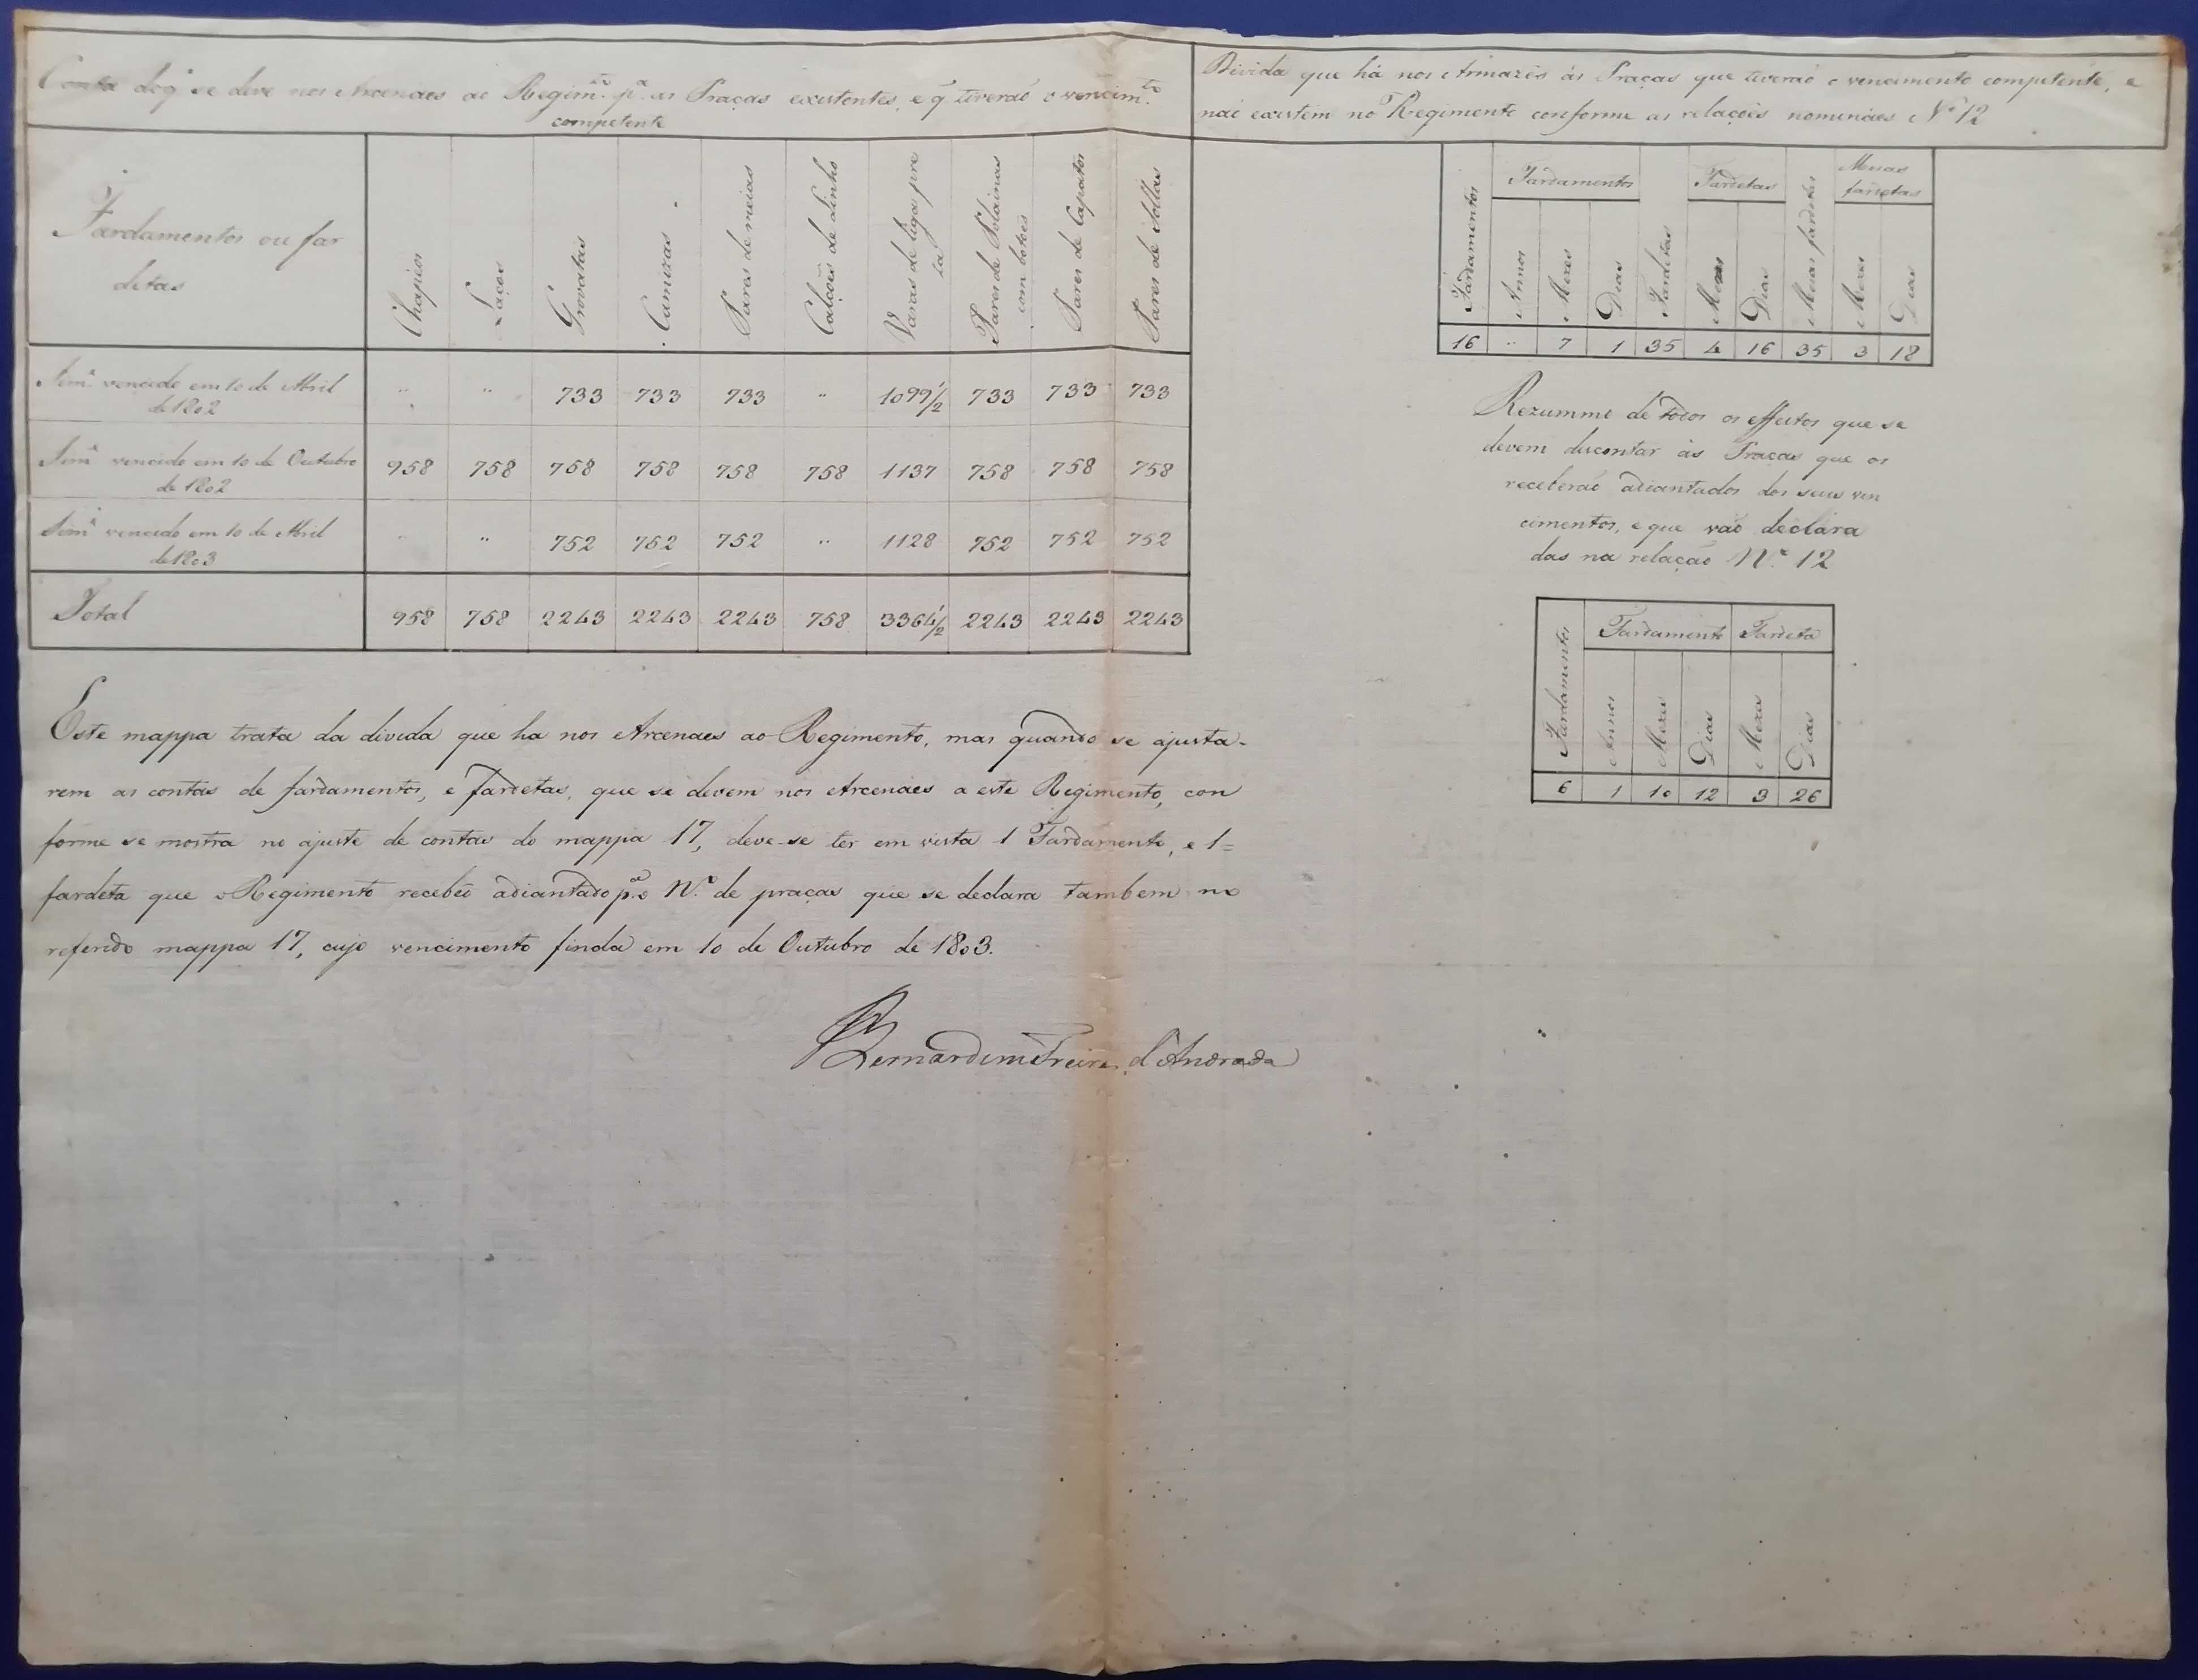 Conta do q̃ se deve nos Arcenaes ao Regim.to p.a as Praças existentes, e q̃ tiverão o vencim.to
competente
Fardamentos ou far
detas
Chapeos
Laços
Grovatas
Camizas
Pares de meias
Calções de Linho
Varas de liga pre
ta
Pares de Polainas
com botoēs
Pares de Çapatos
Pares de Sollas
Sem.e vencido em 10 de Abril
de 1802
" " 733 733 733 " 1099 1/2 733 733 733
Sem.e vencido em 10 de Outubro
de 1802
958 758 758 758 758 758 1137 758 758 758
Sem.e vencido em 10 de Abril
de 1803
" " 752 752 752 " 1128 752 752 752
Total
958 758 2243 2243 2243 758 3364 1/2 2243 2243 2243
Este mappa trata da divida que ha nos Arcenaes ao Regimento, mas quando se ajusta-
rem as contas de fardamentos, e fardetas, que se devem nos Arcenaes a este Regimento, con
forme se mostra no ajuste de contas do mappa 17, deve-se ter em vista 1 Fardamento, e 1=
fardeta que o Regimento recebeo adiantado p.a o N.o de praças que se declara tambem no
referido mappa 17, cujo vencimento finda em 10 de Outubro de 1803.
Bernardim Freire d'Andrada
Divida que há nos Armazēs ás Praças que tiverão o vencimento competente, e
não existem no Regimento conforme as relaçoēs nominaes N.o 12
Fardamentos
Fardamentos
Annos
Mezes
Dias
Fardetas
Fardetas
Mezes
Dias
Meias fardetas
Meias
fardetas
Mezes
Dias
16 " 7 1 35 4 16 35 3 18
Rezummo de todos os effeitos que se
devem discontar ás Praças que os
receberão adiantados dos seus ven
cimentos, e que vão declara
das na relação N.o 12
Fardamentos
Fardamento
Fardeta
Annos
Mezes
Dias
Mezes
Dias
6 1 10 12 3 26